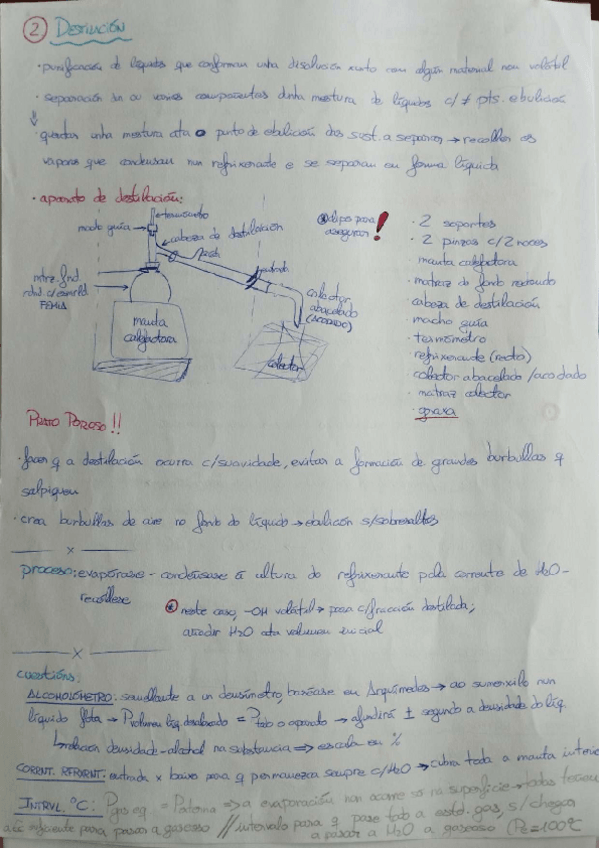 2 DESTILACIÓN
· purificación de líquidos que conforman unha disolución xunto con algún material non volátil
· separación dun ou varios compoñentes dunha mestura de líquidos c/ ≠ pts. ebulición
⇓
· quentar unha mestura ata o punto de ebulición das sust. a separar → recoller os
vapores que condensan nun refrixerante e se separan en forma líquida
· aparato de destilación:
termómetro
macho guía
cabeza de destilación
matraz fnd.
FEMIA
manta
calefactora
colector
abacelado
(ACODADO)
colector
* clips para
asegurar !
· 2 soportes
· 2 pinzas c/2 noces
· manta calefactora
· matraz de fondo redondo
· cabeza de destilación
· macho guía
· termómetro
· refrixerante (recto)
· colector abacelado /acodado
· matraz colector
· graxa
PRATO POROSO!!
· facer q a destilación ocurra c/suavidade, evitar a formación de grandes burbullas q
salpiquen
· crea burbullas de aire no fondo do líquido → ebulición s/sobresaltos
x
proceso: evapórase - condénsase á altura do refrixerante pola corrente de H₂O -
recóllese
* neste caso, -OH volátil → pasa c/fracción destilada;
añadir H₂O ata volumen inicial
x
cuestións:
ALCOHOLÓMETRO: semellante a un densímetro, baséase en Arquímedes → ao sumerxilo nun
líquido flota → P volumen líq. desaloxado = P todo o aparato → afundirá ± segundo a densidade do líq.
↳ relación densidade-alcohol na substancia ⇒ escala en %
CORRNT. REFRXRNT: entrada x baixo para q permanezca sempre c/H₂O → cubra toda a manta interior
INTRVL. ºC: P gas eq = P externa ⇒ a evaporación non ocorre só na superficie → todas teñen
a Ec suficiente para pasar a gaseoso // intervalo para q pase todo a estd. gas, s/ chegar
a pasar a H₂O a gaseoso (Pe = 100ºC